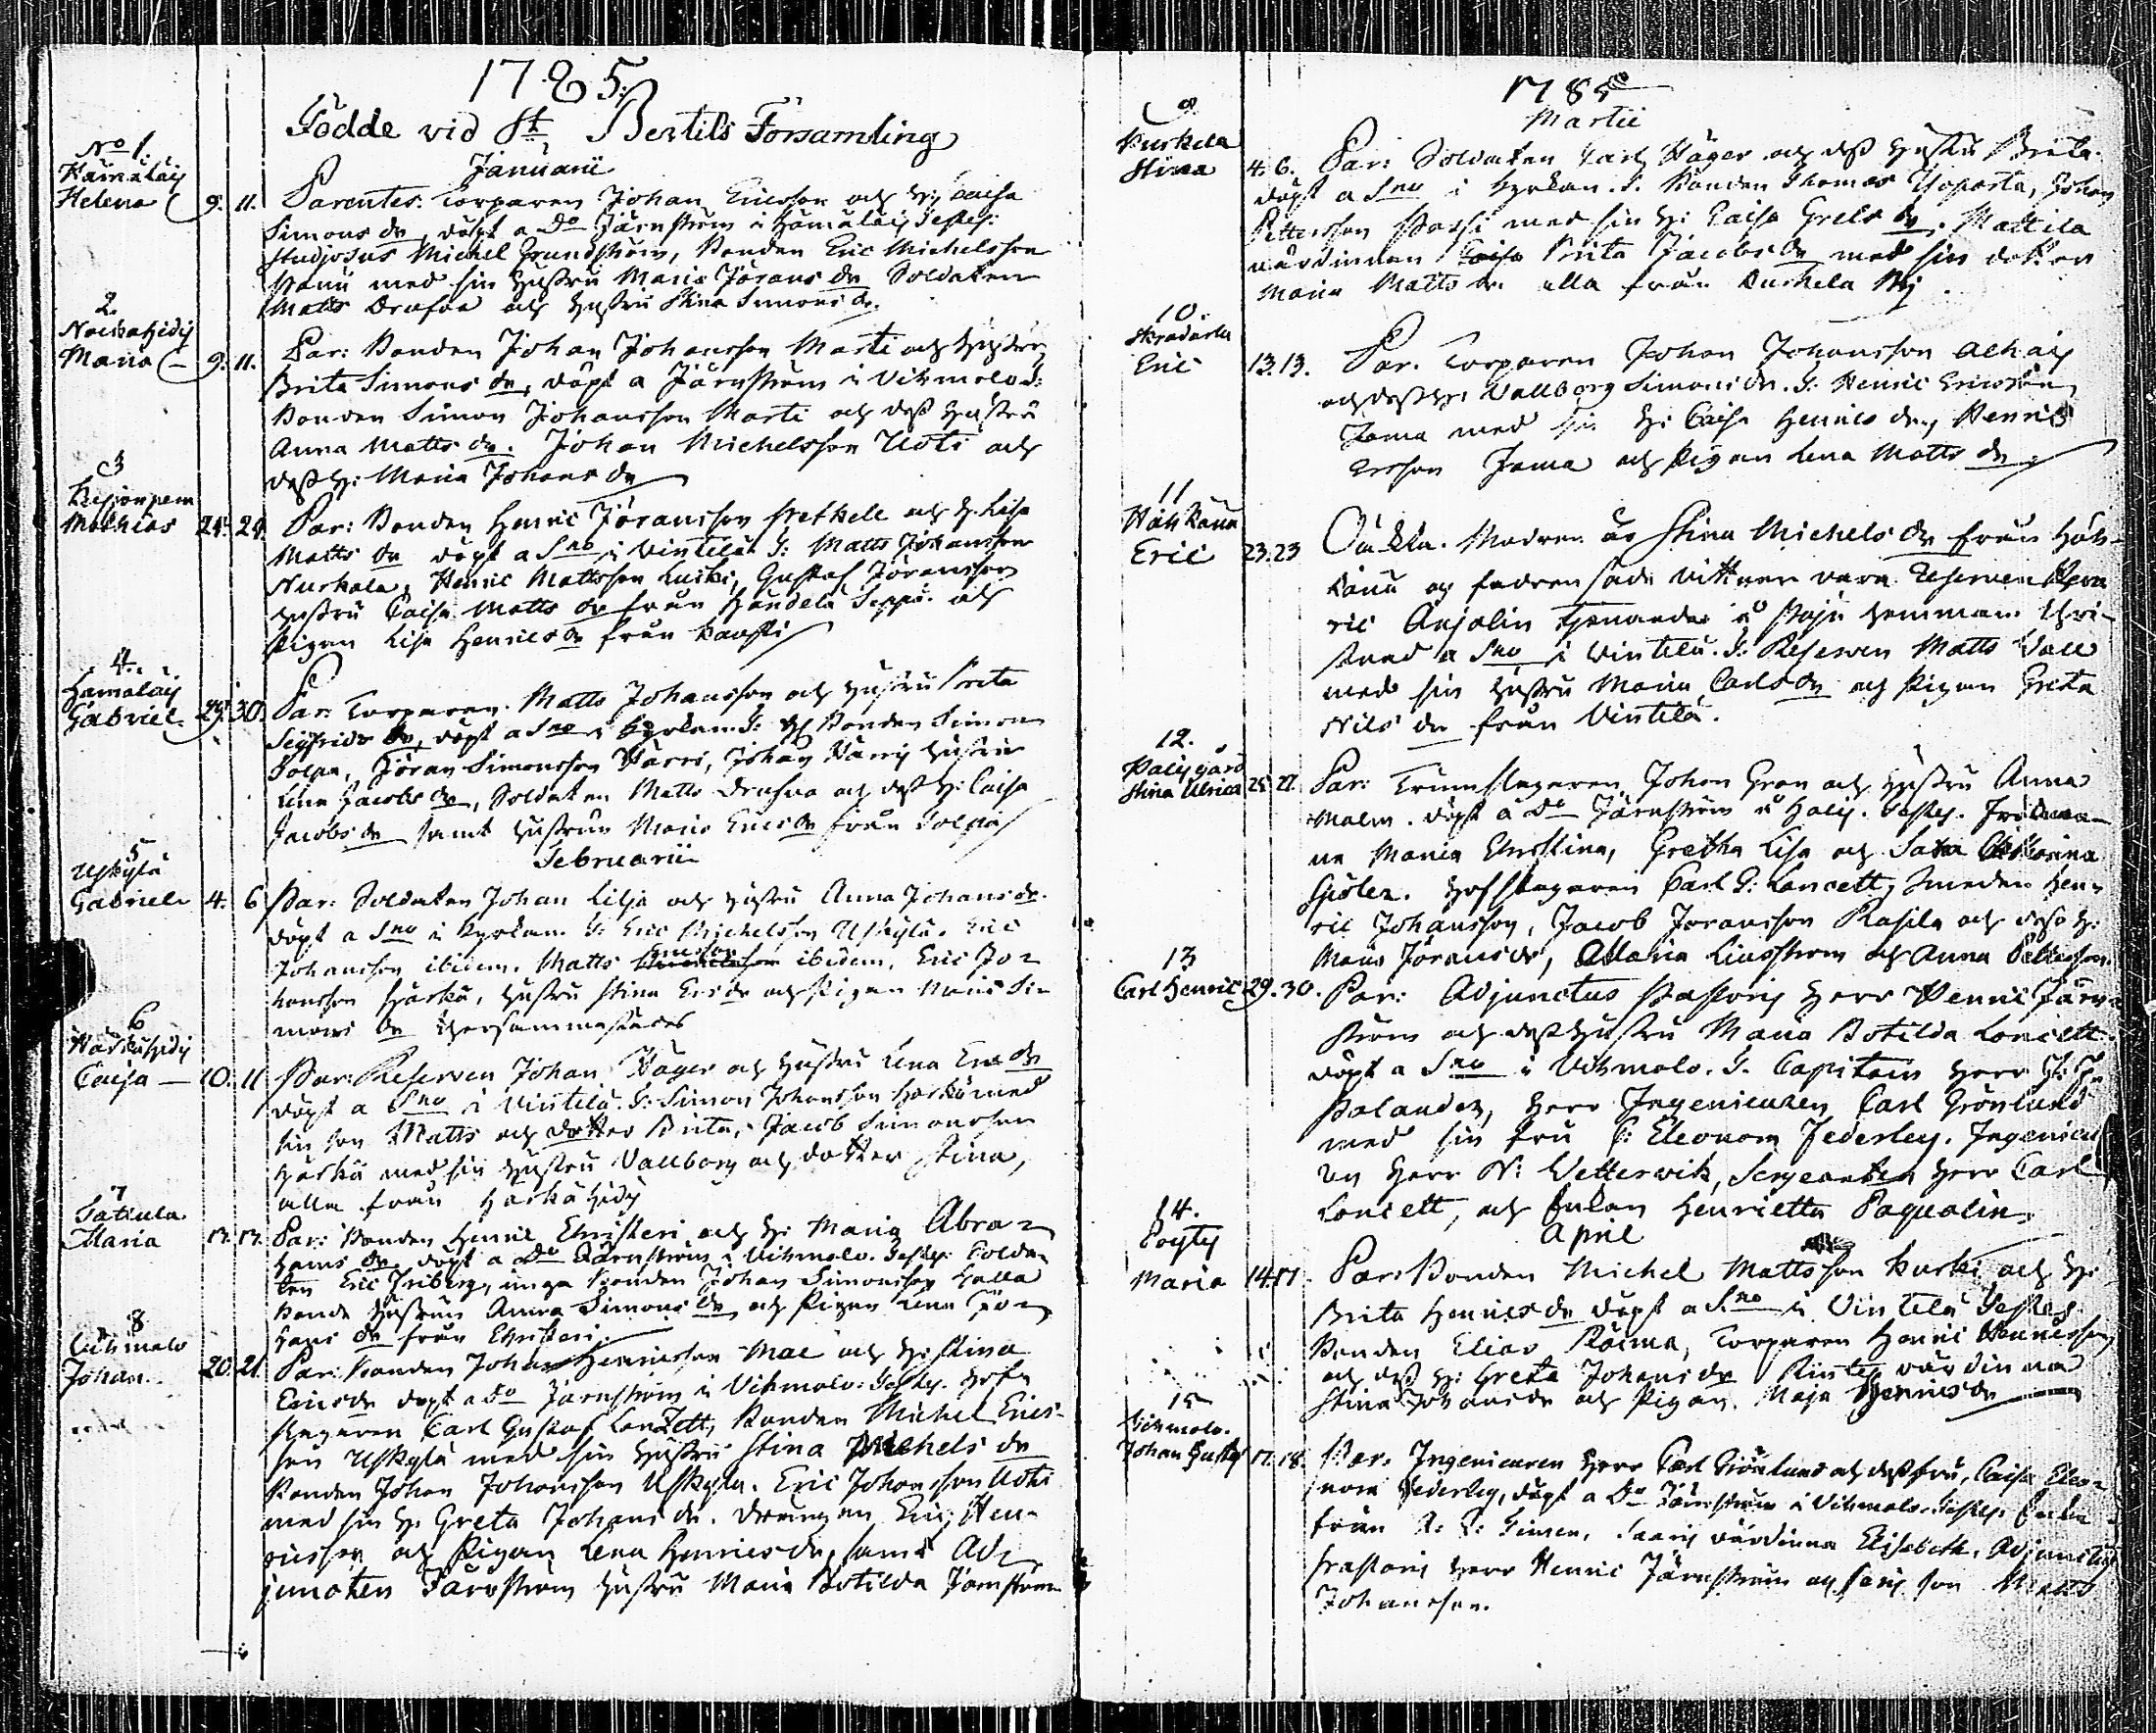 1785.
Födde vid St. Bertils Församling
Januarii
No 1.
Hämäläis
Helena 9. 11. Parentes: Torparen Johan Ericsson och H: Caisa
Simons dr, döpt a Do Järnström i Hämäläis Testes:
Studiosus Michel Grundström, Bonden Eric Michelsson
med sin Hustru Maria Jörans dr Soldaten
Matts Drufva och Hustru Stina Simons dr.
2.
Maria 9. 11. Par: Bonden Johan Johansson Marti och Hustru
Brita Simons dr, döpt a Järnström i Vihmalo T:
Bonden Simon Johansson Marti och dess Hustru
Anna Matts dr. Johan Michelsson Uoti och
dess H: Maria Johans dr
3
Mathias 24. 24. Par: Bonden Henric Jöransson och H. Lisa
Matts dr döpt a Sno i Vintelä T: Matts Johansson
Nurkala, Henric Mattsson Kurki, Gustaf Jöransson
Hustru Caisa Matts dr från Händelä Seppä och
Pigan Lisa Henrics dr från
4.
Hämäläis
Gabriel 29. 30. Par: Torparen Matts Johansson och Hustru Brita
Sigfrids dr, döpt a Sno i Kyrkan T: Bonden Simon
Jöran Simonsson Harri, Johan Harris Hustru
Lena Jacobs dr, Soldaten Matts Drufva och dess H: Caisa
Jacobs dr samt Hustrun Maria Erics dr från
Februarii
5
Uskylä
Gabriel 4. 6 Par: Soldaten Johan Lilja och Hustru Anna Johans dr.
döpt a Sno i Kyrkan T: Eric Michelsson Uskylä. Eric
Johansson ibidem. Matts Ericsson ibidem. Eric Jo-
hansson Härkä, Hustru Stina Erics dr och Pigan Maria Si-
mons dr
6
Caisa 10. 11 Par: Reserven Johan Häger och Hustru Lena Erics dr
döpt a Sno i Vintelä. T: Simon Johansson Härkä med
sin son Matts och dotter Brita, Jacob Simonsson
Härkä med sin Hustru Vallborg och dotter Stina,
alla från Härkähidis
7
Maria 17. 17. Par: Bonden Henric Christeri och H: Maria Abra-
hams dr döpt a Do Järnström i Vihmalo. Testes: Solda-
ten Eric Friberg, unga Bonden Johan Simonsson Halla
Bonde Hustrun Anna Simons dr och Pigan Lena Jo-
hans dr från Christeri.
8
Vihmalo
Johan 20. 21. Par: Bonden Johan Henricsson Mäe och H: Stina
Erics dr döpt a Do Järnström i Vihmalo: Testes. Hof-
slagaren Carl Gustaf Lonzett, Bonden Michel Erics-
son Uskylä med sin Hustru Stina Michels dr
Bonden Johan Johansson Uskylä. Eric Johansson Uoti
med sin H: Greta Johans dr. Drengen Eric Hen-
ricsson och Pigan Lena Henrics dr, samt Ad-
juncten Järnström Hustru Maria Botilda Järnström
1785
Martii
9
Kurkela
Stina 4. 6. Par: Soldaten Carl Häger och dess Hustru Brita
döpt a Sno i Kyrkan. T. Bonden Thomas Johan
Pettersson Passi med sin H: Caisa Grels dr. Mattila
värdinnan Brita Jacobs dr med sin dotter
Maria Matts dr alla från Kurkela By.
10.
Eric 13. 13. Par. Torparen Johan Johansson
och dess H: Vallborg Simons dr. T: Henric Ericsson
Jama med sin H: Caisa Henrics dr, Henric
Ersson Jama och Pigan Lena Matts dr
11
Eric 23. 23 Oäkta. Modren är Stina Michels dr från
och fadren sade vittnen vara Reserven Hen-
ric Anjolin tjenandes å hemman Chri-
stnad a Sno i Vintelä. T: Reserven Matts Vall
med sin Hustru Maria Carls dr och Pigan Greta
Nils dr från Vintelä.
12.
Halis gård
Stina Ulrica 25. 27. Par: Trumslagaren Johan Gran och Hustru Anna
Malm. döpt a Do Järnström å Halis. Testes.
Maria Christina, Gretha Lisa och Sara Catharina
Gisler. Hofslagaren Carl G: Loncett, Smeden Hen-
ric Johansson, Jacob Joransson Rasila och dess H:
Maria Jörans dr, Maria Lindström och Anna Pettersson.
13
Carl Henric 29. 30. Par: Adjunctus Pastoris Herr Henric Järn-
ström och dess Hustru Maria Botilda Loncett.
döpt a Sno i Vihmalo. T. Capitain Herr
Polander, Herr Ingenieuren Carl Grönlund
med sin fru C: Eleonora Federley. Ingenieu-
ren Herr N: Wetterwik, Sergeanten Herr Carl
Loncett, och Enkan Henrietta Paqualin.
April
14.
Pöytis
Maria 14. 17. Par: Bonden Michel Mattsson Kurki och H:
Brita Henrics dr döpt a Sno i Vintelä Testes
Bonden Elias Torparen Henric Henricsson
och dess H: Greta Johans dr värdinna
Stina Johans dr och Pigan. Maja Henrics dr
15
Vihmalo.
Johan Gustaf 17. 18. Par. Ingenieuren Herr Carl Grönlund och dess fru, Caisa Eleo-
nora Federley, döpt a Do Järnström i Vihmalo. Testes.
från värdinna Elisabeth, Adjunctus
Pastoris Herr Henric Järnström och son Matts
Johansson.